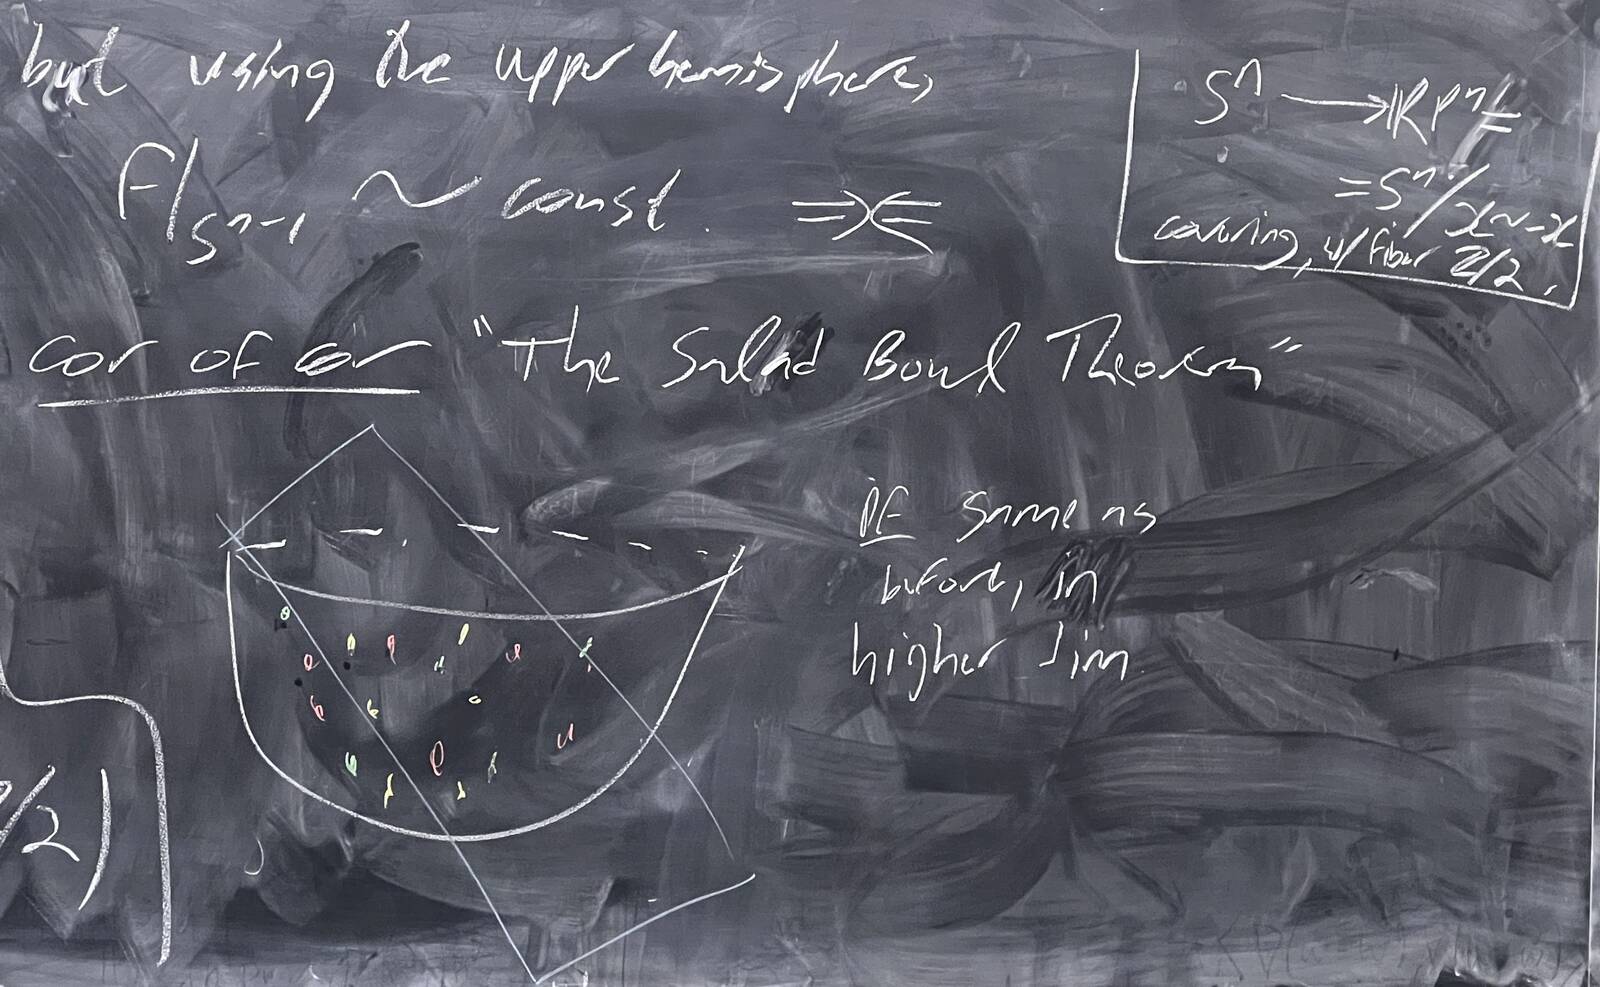 but using the upper hemisphere,
F|_{S^{n-1}} ~ const. ⇒⇐
S^n → RP^n =
= S^n/x~-x
covering, w/ fiber Z/2.
cor of cor "The Salad Bowl Theorem"
PF same as
before, in
higher dim.
/2)